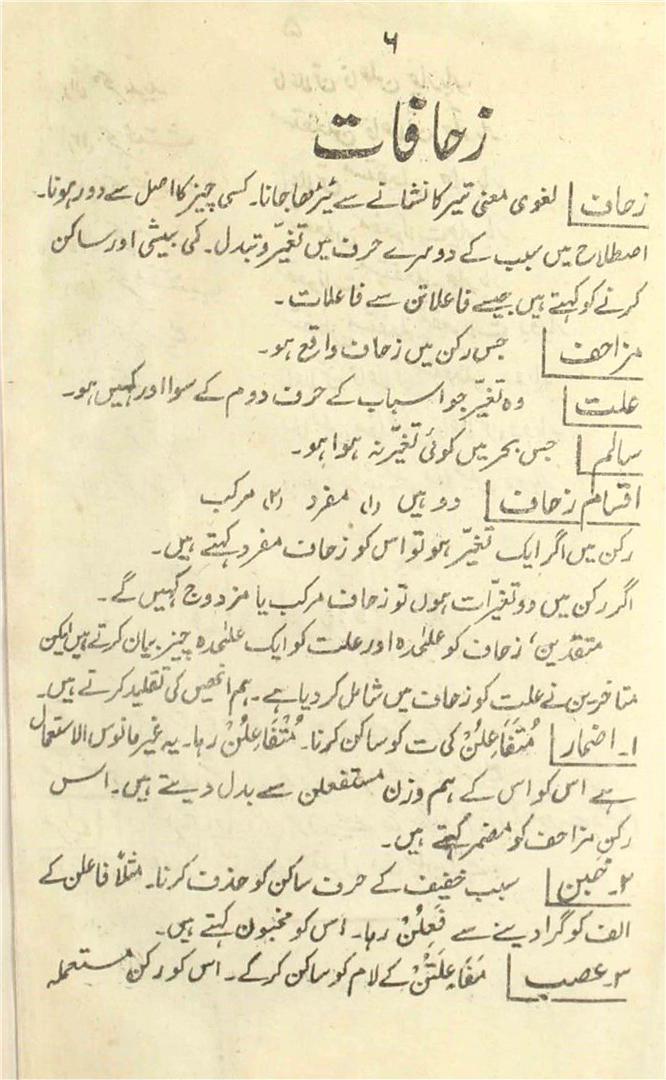 ۶
زحافات
زحاف لغوی معنی تیر کا نشانے سے ٹیڑھا جانا۔ کسی چیز کا اصل سے دور ہونا۔
اصطلاح میں سبب کے دوسرے حرف میں تغیّر و تبدل۔ کمی بیشی اور ساکن
کرنے کو کہتے ہیں جیسے فاعلاتن سے فاعلات۔
مزاحف جس رکن میں زحاف واقع ہو۔
علت وہ تغیّر جو اسباب کے حرف دوم کے سوا اور کہیں ہو۔
سالم جس بحر میں کوئی تغیّر نہ ہوا ہو۔
اقسام زحاف دو ہیں (۱) مفرد (۲) مرکب
رکن میں اگر ایک تغیّر ہو تو اس کو زحاف مفرد کہتے ہیں۔
اگر رکن میں دو تغیّرات ہوں تو زحاف مرکب یا مزدوج کہیں گے۔
متقدین، زحاف کو علٰحدہ اور علت کو ایک علٰحدہ چیز بیان کرتے ہیں لیکن
متاخرین نے علت کو زحاف میں شامل کر دیا ہے۔ ہم انھیں کی تقلید کرتے ہیں۔
۱۔ اضمار مُتَفَاعِلُنْ کی ت کو ساکن کرنا۔ مُتْفَاعِلُنْ رہا۔ یہ غیر مانوس الاستعمال
ہے اس کو اس کے ہم وزن مستفعلن سے بدل دیتے ہیں۔ اس
رکنِ مزاحف کو مضمر کہتے ہیں۔
۲۔ خبن سبب خفیف کے حرف ساکن کو حذف کرنا۔ مثلاً فاعلن کے
الف کو گرا دینے سے فَعِلُنْ رہا۔ اس کو مخبون کہتے ہیں۔
۳۔ عصب مَفَاعِلَتُنْ کے لام کو ساکن کر کے۔ اس کو رکن مستعملہ